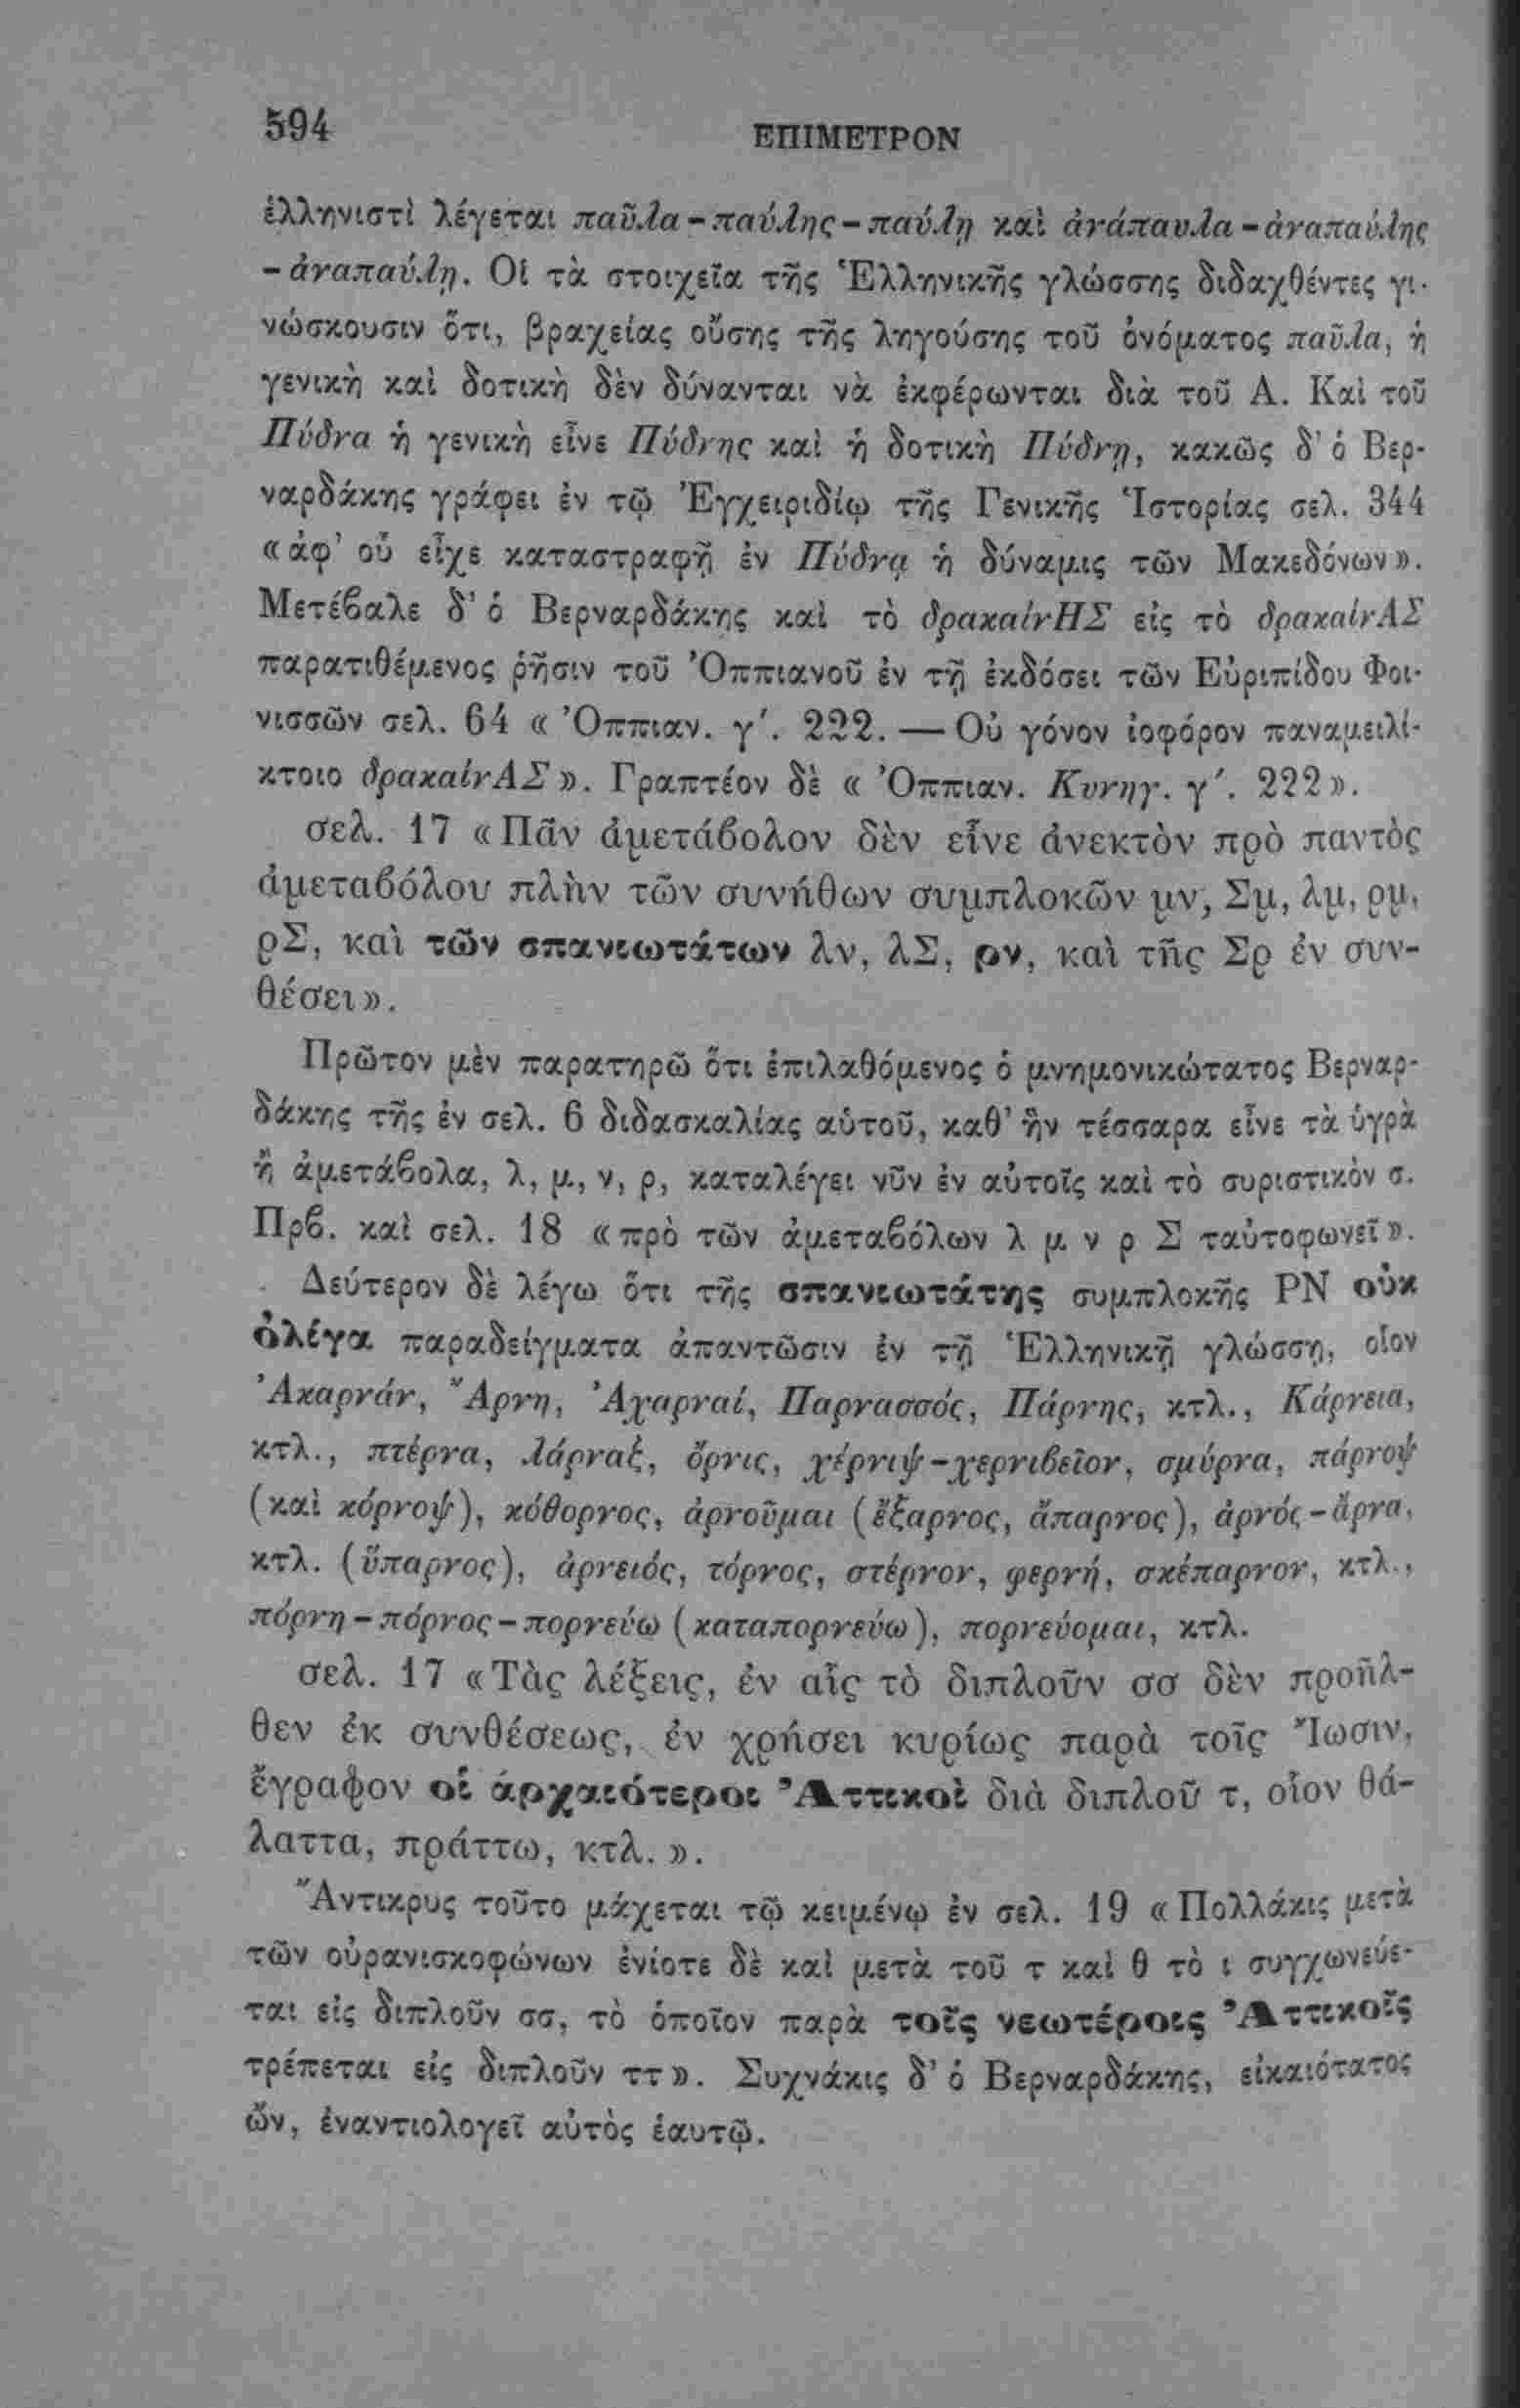 594
ΕΠΙΜΕΤΡΟΝ
ἑλληνιστὶ λέγεται παῦλα - παύλης - παύλῃ καὶ ἀνάπαυλα - ἀναπαύλης
- ἀναπαύλῃ. Οἱ τὰ στοιχεῖα τῆς Ἑλληνικῆς γλώσσης διδαχθέντες γι-
νώσκουσιν ὅτι, βραχείας οὔσης τῆς ληγούσης τοῦ ὀνόματος παῦλα, ἡ
γενικὴ καὶ δοτικὴ δὲν δύνανται νὰ ἐκφέρωνται διὰ τοῦ Α. Καὶ τοῦ
Πύδνα ἡ γενικὴ εἶνε Πύδνης καὶ ἡ δοτικὴ Πύδνῃ, κακῶς δ' ὁ Βερ-
ναρδάκης γράφει ἐν τῷ Ἐγχειριδίῳ τῆς Γενικῆς Ἱστορίας σελ. 344
«ἀφ' οὗ εἶχε καταστραφῆ ἐν Πύδνᾳ ἡ δύναμις τῶν Μακεδόνων».
Μετέβαλε δ' ὁ Βερναρδάκης καὶ τὸ δρακαίνΗΣ εἰς τὸ δρακαίνΑΣ
παρατιθέμενος ῥῆσιν τοῦ Ὀππιανοῦ ἐν τῇ ἐκδόσει τῶν Εὐριπίδου Φοι-
νισσῶν σελ. 64 « Ὀππιαν. γ΄. 222. — Οὐ γόνον ἰοφόρον παναμειλί-
κτοιο δρακαίνΑΣ». Γραπτέον δὲ « Ὀππιαν. Κυνηγ. γ΄. 222».
σελ. 17 «Πᾶν ἀμετάβολον δὲν εἶνε ἀνεκτὸν πρὸ παντὸς
ἀμεταβόλου πλὴν τῶν συνήθων συμπλοκῶν μν, Σμ, λμ, ρμ,
ρΣ, καὶ τῶν σπανιωτάτων λν, λΣ, ρν, καὶ τῆς Σρ ἐν συν-
θέσει».
Πρῶτον μὲν παρατηρῶ ὅτι ἐπιλαθόμενος ὁ μνημονικώτατος Βερναρ-
δάκης τῆς ἐν σελ. 6 διδασκαλίας αὑτοῦ, καθ' ἣν τέσσαρα εἶνε τὰ ὑγρὰ
ἢ ἀμετάβολα, λ, μ, ν, ρ, καταλέγει νῦν ἐν αὐτοῖς καὶ τὸ συριστικὸν σ.
Πρβ. καὶ σελ. 18 «πρὸ τῶν ἀμεταβόλων λ μ ν ρ Σ ταὐτοφωνεῖ».
Δεύτερον δὲ λέγω ὅτι τῆς σπανιωτάτης συμπλοκῆς ΡΝ οὐκ
ὀλίγα παραδείγματα ἀπαντῶσιν ἐν τῇ Ἑλληνικῇ γλώσσῃ, οἷον
Ἀκαρνάν, Ἄρνη, Ἀχαρναί, Παρνασσός, Πάρνης, κτλ., Κάρνεια,
κτλ., πτέρνα, λάρναξ, ὄρνις, χέρνιψ - χερνιβεῖον, σμύρνα, πάρνοψ
(καὶ κόρνοψ), κόθορνος, ἀρνοῦμαι (ἔξαρνος, ἄπαρνος), ἀρνός - ἄρνα,
κτλ. (ὕπαρνος), ἀρνειός, τόρνος, στέρνον, φερνή, σκέπαρνον, κτλ.,
πόρνη - πόρνος - πορνεύω (καταπορνεύω), πορνεύομαι, κτλ.
σελ. 17 «Τὰς λέξεις, ἐν αἷς τὸ διπλοῦν σσ δὲν προῆλ-
θεν ἐκ συνθέσεως, ἐν χρήσει κυρίως παρὰ τοῖς Ἴωσιν,
ἔγραφον οἱ ἀρχαιότεροι Ἀττικοὶ διὰ διπλοῦ τ, οἷον θά-
λαττα, πράττω, κτλ.».
Ἄντικρυς τοῦτο μάχεται τῷ κειμένῳ ἐν σελ. 19 «Πολλάκις μετὰ
τῶν οὐρανισκοφώνων ἐνίοτε δὲ καὶ μετὰ τοῦ τ καὶ θ τὸ ι συγχωνεύε-
ται εἰς διπλοῦν σσ, τὸ ὁποῖον παρὰ τοῖς νεωτέροις Ἀττικοῖς
τρέπεται εἰς διπλοῦν ττ». Συχνάκις δ' ὁ Βερναρδάκης, εἰκαιότατος
ὤν, ἐναντιολογεῖ αὐτὸς ἑαυτῷ.